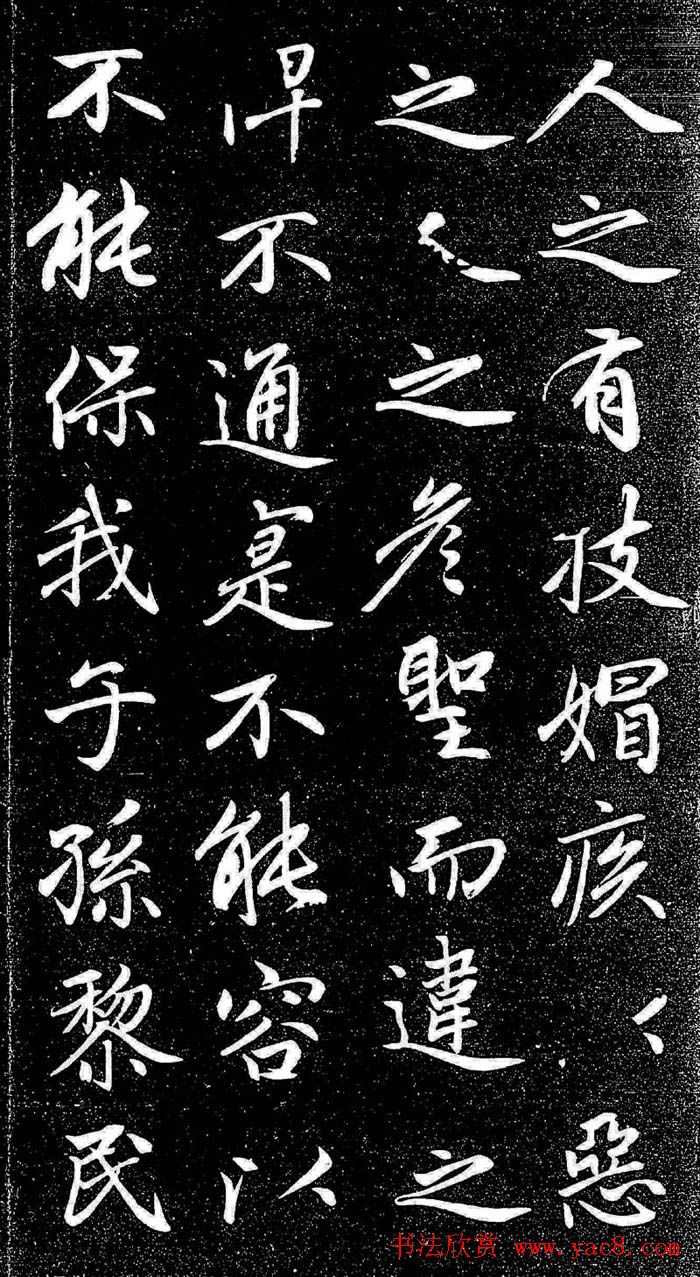 人之有技媢疾以惡
之人之彥聖而違之
俾不通寔不能容以
不能保我子孫黎民
书法欣赏 www.yac8.com